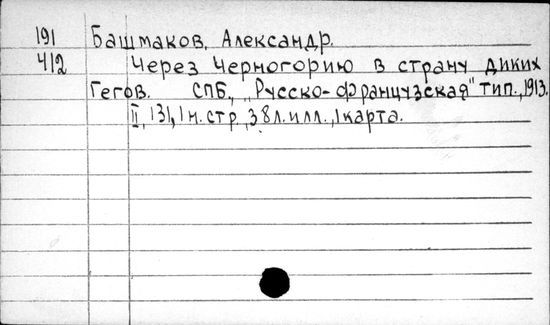 191 Башмаков, Александр.
412 Через Черногорию в страну диких
Гегов. СПБ., „Русско-французская" тип., 1913.
II, 131, 1 н. стр., 38 л. илл., 1 карта.